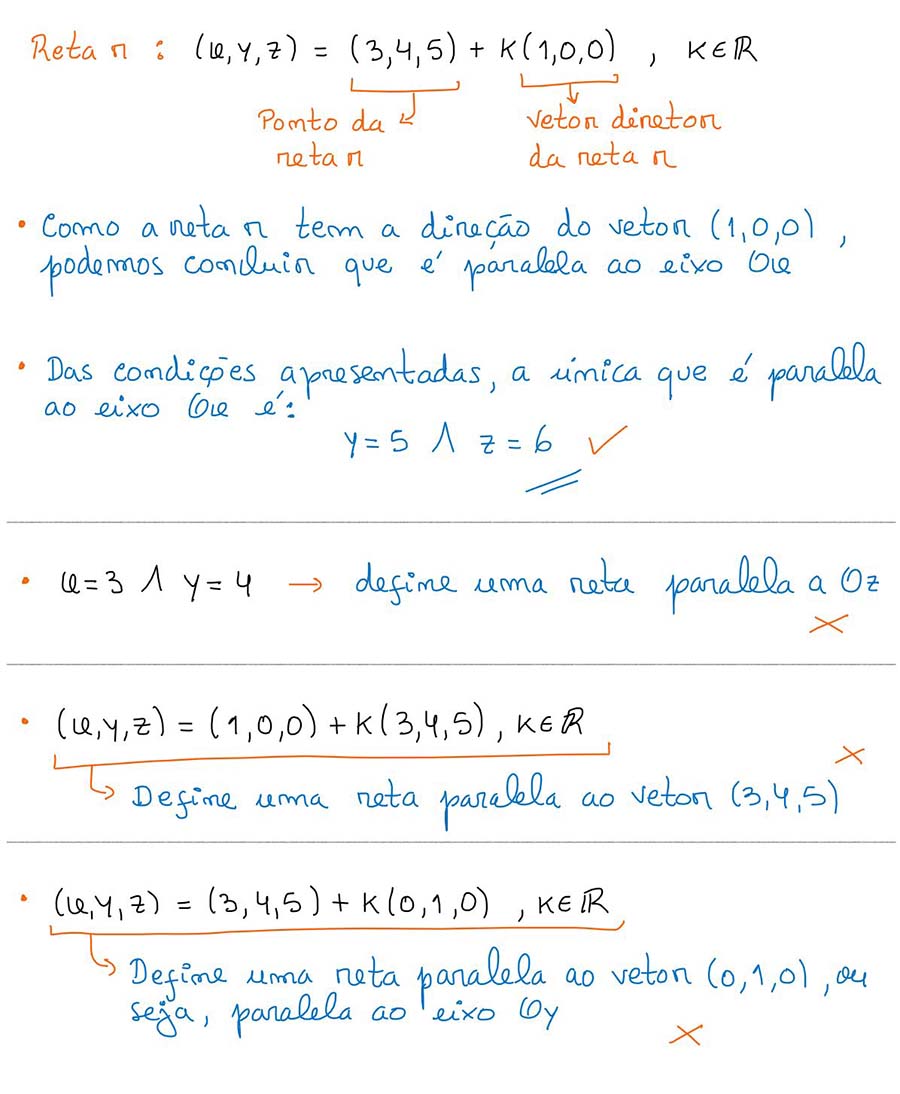 Reta r : (x,y,z) = (3,4,5) + K(1,0,0) , K∈ℝ
Ponto da reta r
vetor diretor da reta r
• Como a reta r tem a direção do vetor (1,0,0) ,
podemos concluir que é paralela ao eixo Ox
• Das condições apresentadas, a única que é paralela
ao eixo Ox é:
y = 5 ∧ z = 6 ✓
• x = 3 ∧ y = 4 → define uma reta paralela a Oz
×
• (x,y,z) = (1,0,0) + K(3,4,5) , K∈ℝ
×
↳ Define uma reta paralela ao vetor (3,4,5)
• (x,y,z) = (3,4,5) + K(0,1,0) , K∈ℝ
↳ Define uma reta paralela ao vetor (0,1,0) , ou
seja, paralela ao eixo Oy
×